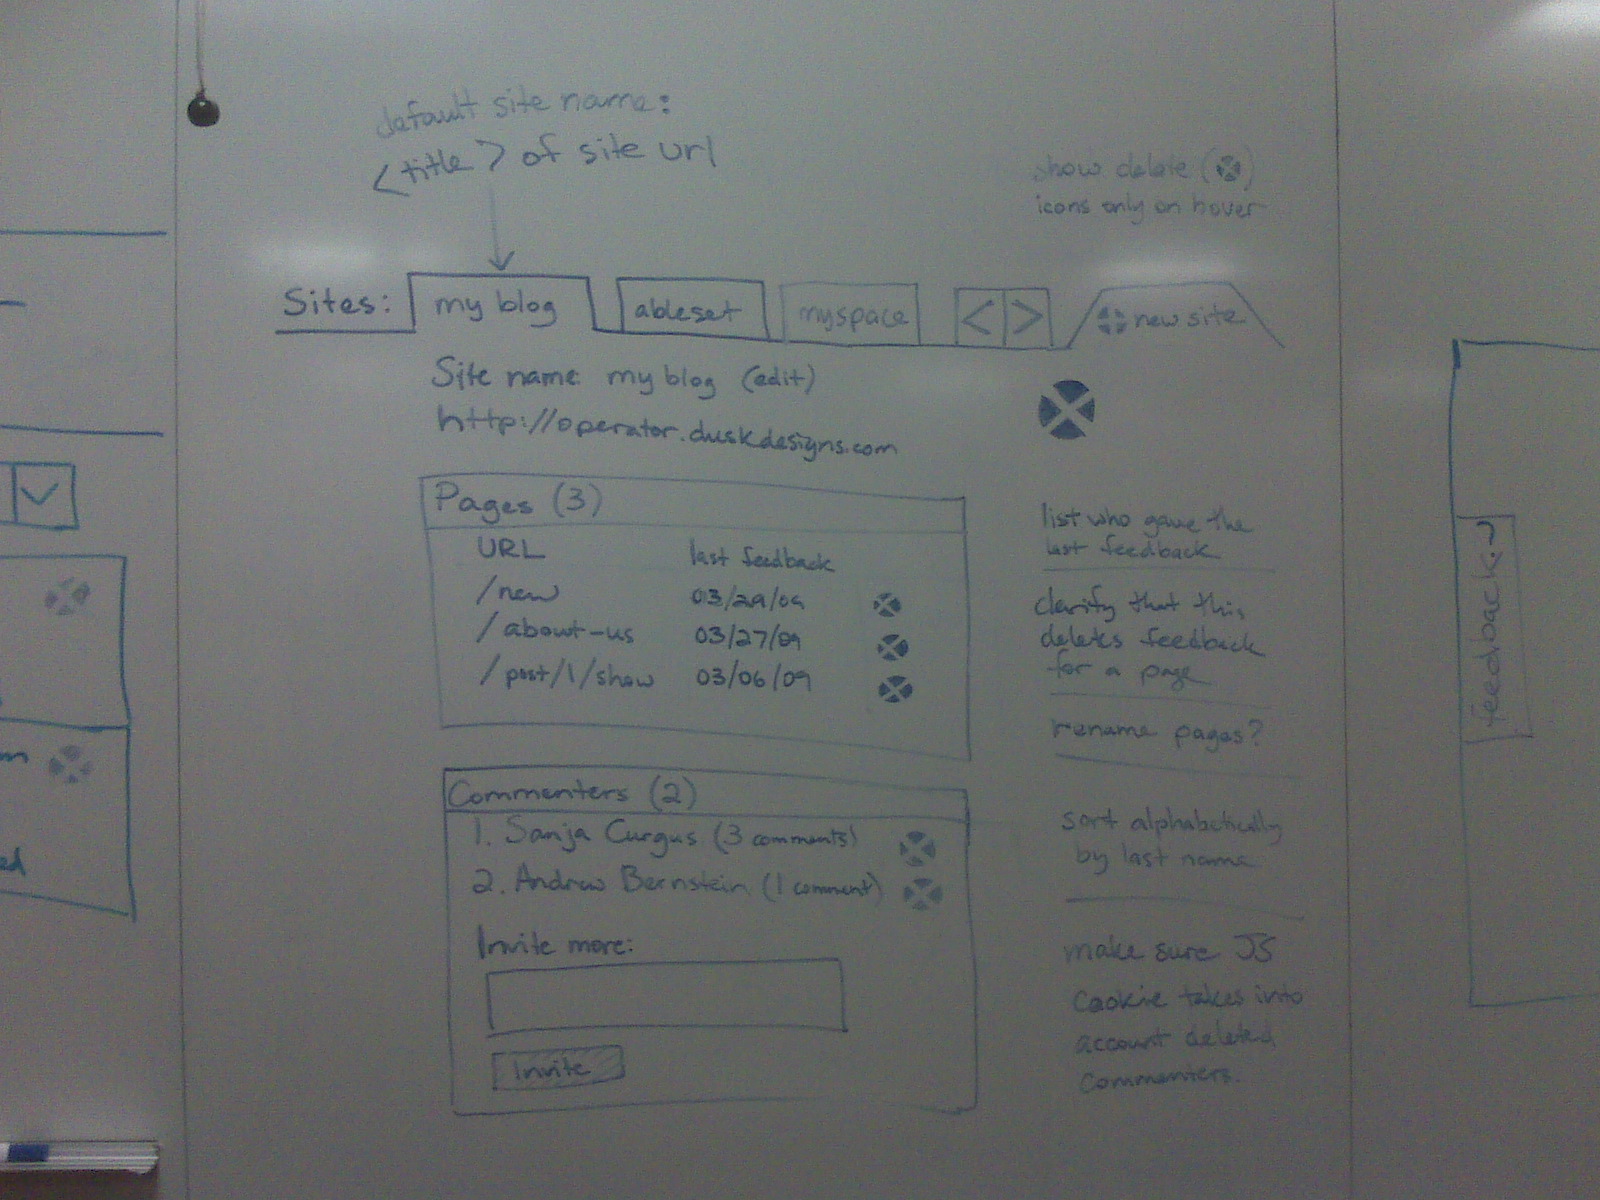 default site name:
<title> of site url
show delete ( )
icons only on hover
Sites:
my blog
ableset
myspace
< >
new site
Site name my blog (edit)
http://operator.duskdesigns.com
Pages (3)
URL last feedback
/new 03/29/09
/about-us 03/27/09
/post/1/show 03/06/09
Commenters (2)
1. Sanja Curgus (3 comments)
2. Andrew Bernstein (1 comment)
Invite more:
Invite
list who gave the
last feedback
clarify that this
deletes feedback
for a page
rename pages?
sort alphabetically
by last name
make sure JS
cookie takes into
account deleted
commenters.
feedback